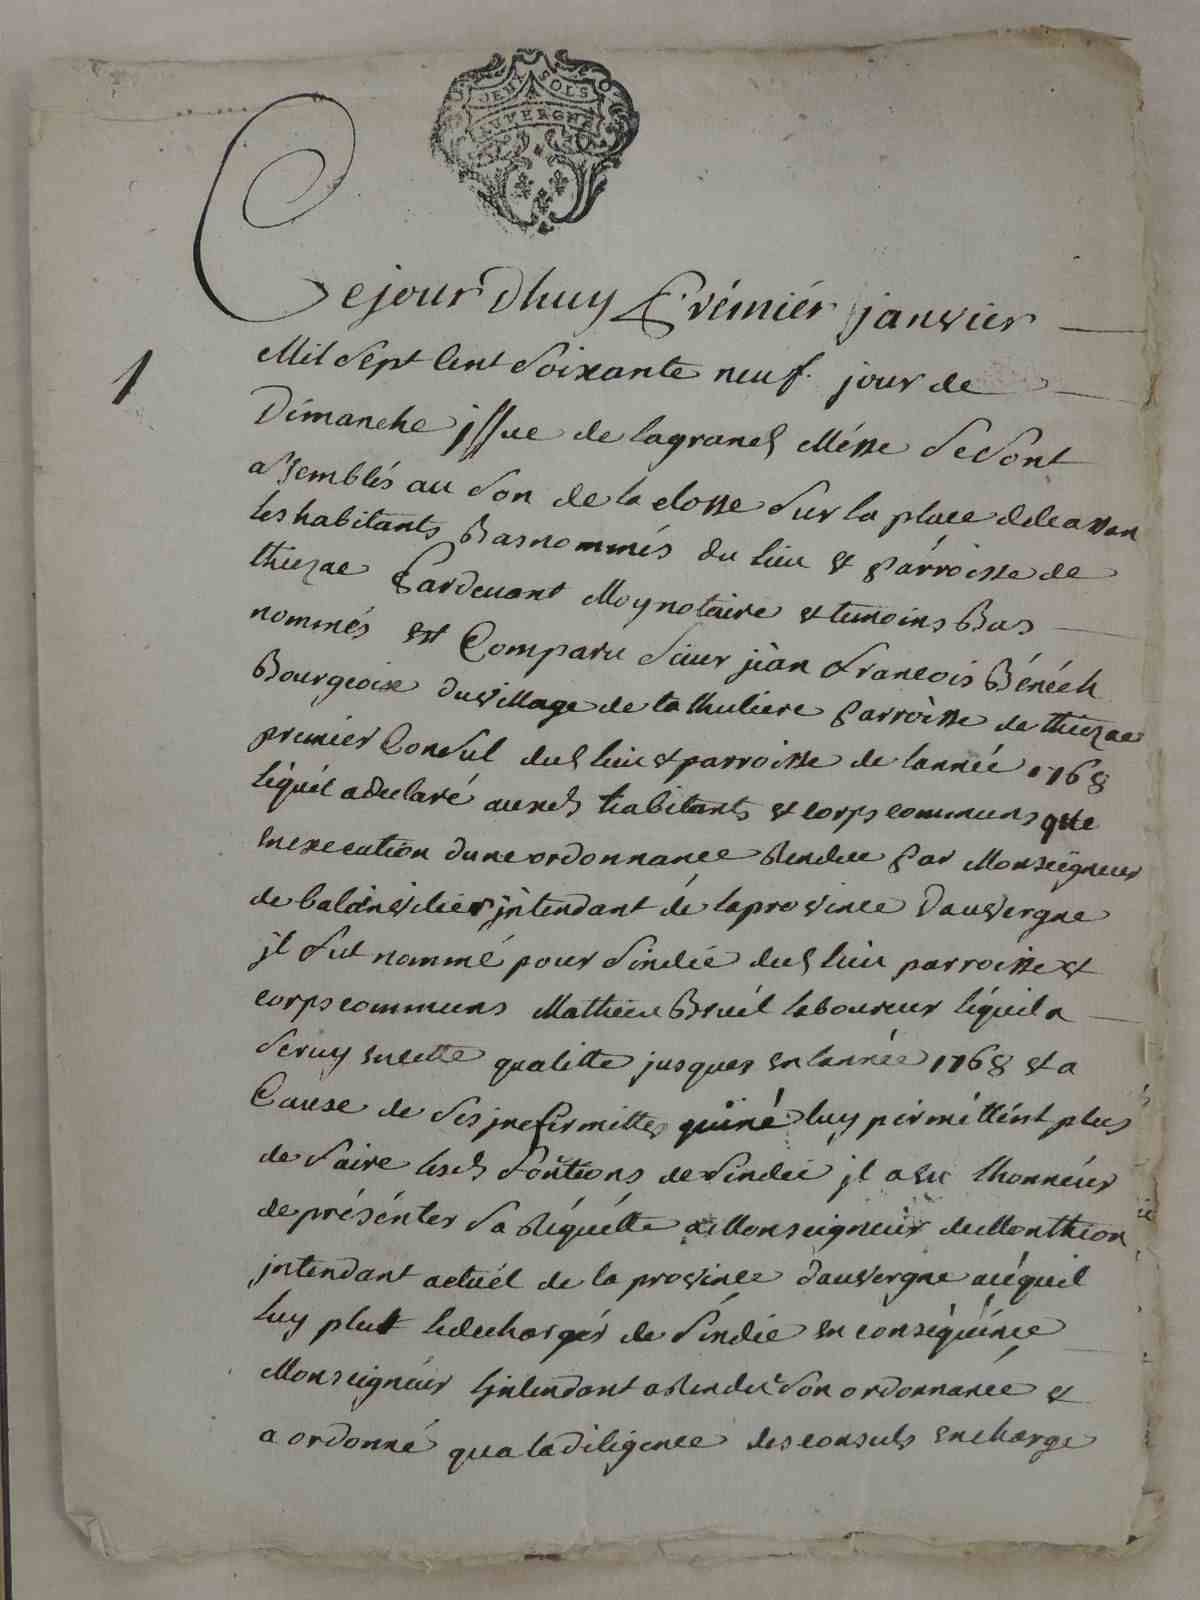 DEUX SOLS
AUVERGNE
Cejour dhuy premiér janvier
1
Mil sept Cent soixante neuf. jour de
Dimanche jssue de lagrand Messe se sont
assemblés au son de la closse sur la place
les habitants Basnommés du lieu & parroisse de
thiezac pardevant Moy notaire & temoins Bas
nommés est Comparu sieur jéan françois Bénéch
Bourgeoix du village de la thuliere parroisse de thiezac
premier Consul dud lieu & parroisse de lannée 1768
léquél adeclaré auxd habitants & corps communs que
en execution dune ordonnance Rendue par Monseigneur
de balainvilier jntendant dé laprovince Dauvergne
jl fut nommé pour sindic dud lieu parroisse &
corps communs Mathieu Bruél laboureur léquél a
servy en cette qualitte jusques en lannée 1768 & a
Cause de ses jnfirmittes quiné luy pérméttént plus
de faire lesd fontions de sindic jl a eu lhonnéur
de présénter sa Réquétte a Monseigneur de Monthion
jntendant actuél de la province dauvergne auquél
luy plut ledechargér de sindic en conséquénce
Monseignéur Ljntendant a Rendu son ordonnance &
a ordonné qua la diligence des consuls en charge